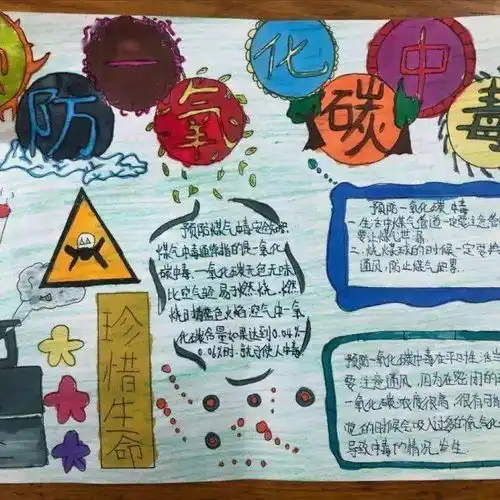 防一氧化碳中毒
预防煤气中毒安全知
煤气中毒通常指的是一氧化
碳中毒.一氧化碳无色无味
比空气轻.易于燃烧,燃
烧时 色火焰.空气中一氧
化碳含量如果达到0.04%
0.06%时.就可使人中毒
预防一氧化碳中毒
一.生活中煤气管道一定要注意
要让煤气泄漏.
二.烧煤球的时候一定要
通风,防止煤气
预防一氧化碳中毒在平时生活当
要注意通风.因为在密闭的
一氧化碳浓度很高.很有可
的时候会吸入过多的 氧化
导致中毒的情况发生.
珍惜生命